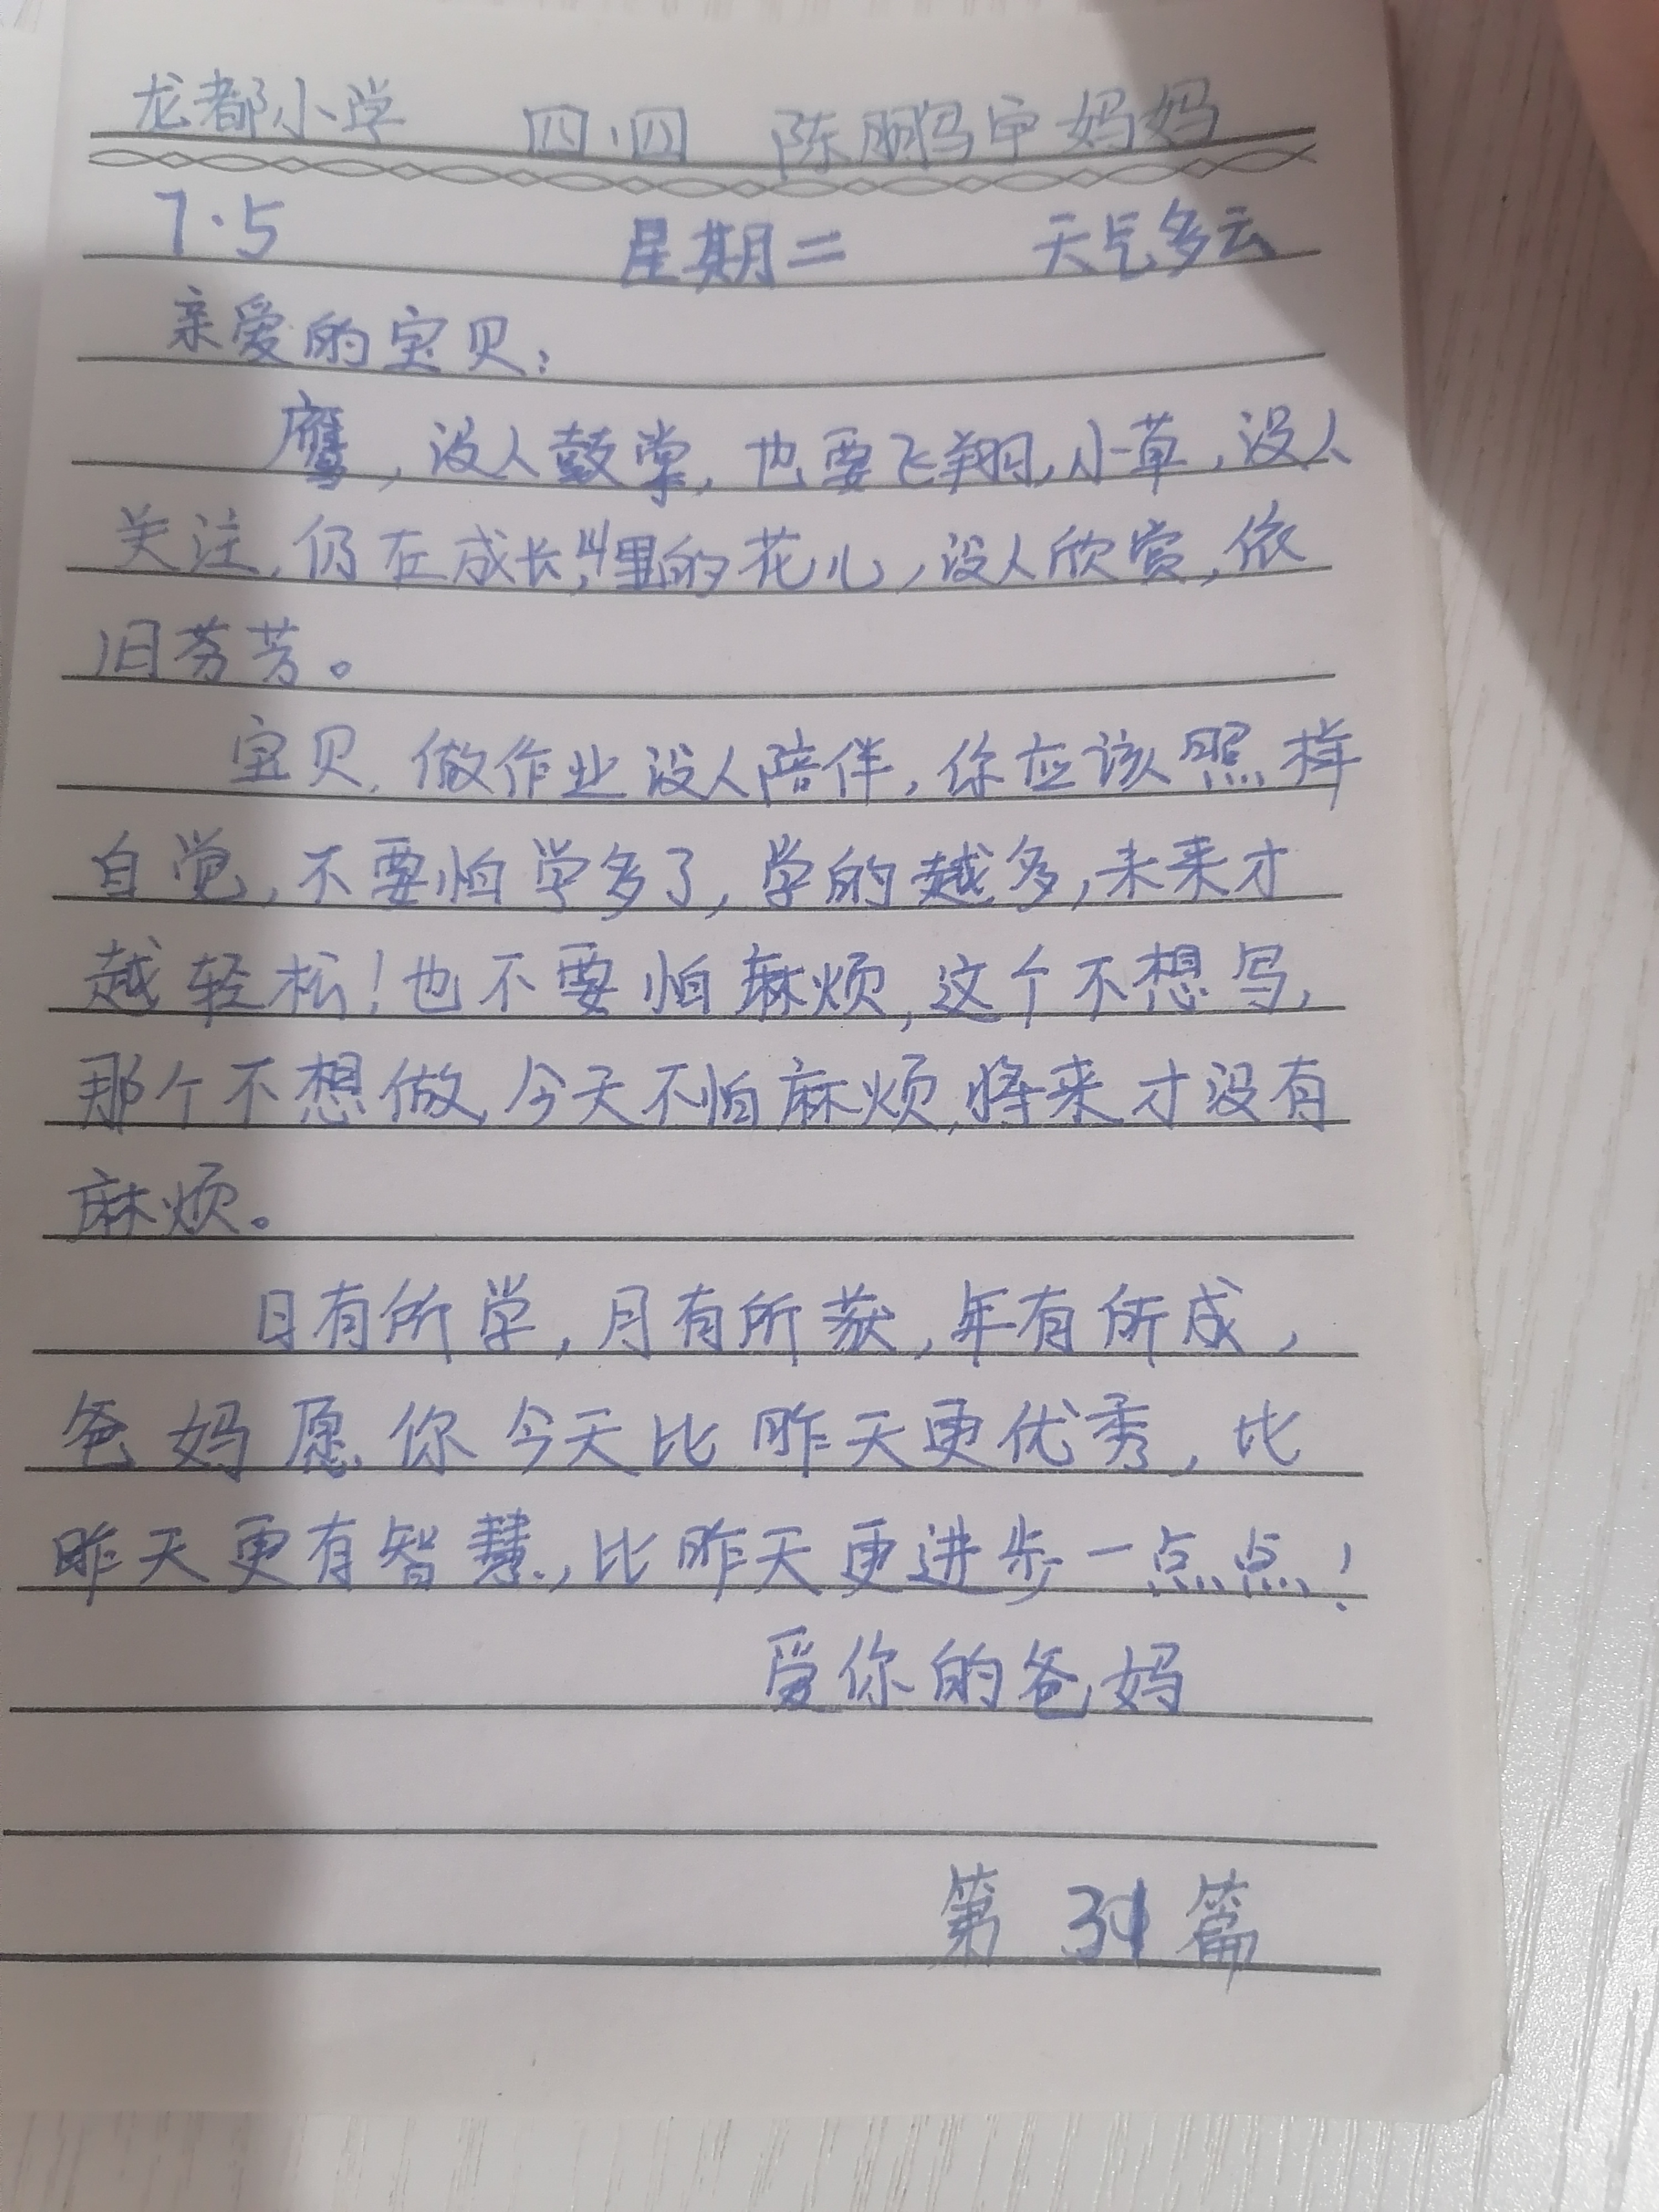 龙都小学 四.四 陈鹏宇妈妈
7.5 星期二 天气多云
亲爱的宝贝:
鹰,没人鼓掌,也要飞翔,小草,没人
关注,仍在成长,山里的花儿,没人欣赏,依
旧芬芳。
宝贝,做作业没人陪伴,你应该照样
自觉,不要怕学多了,学的越多,未来才
越轻松!也不要怕麻烦,这个不想写,
那个不想做,今天不怕麻烦,将来才没有
麻烦。
日有所学,月有所获,年有所成,
爸妈愿你今天比昨天更优秀,比
昨天更有智慧,比昨天更进步一点点!
爱你的爸妈
第31篇